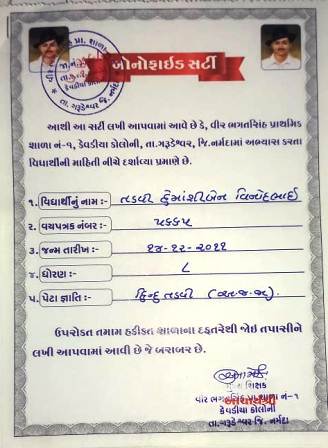 વીર ભગતસિંહ પ્રા. શાળા
કેવડીયા કોલોની
તા. ગરૂડેશ્વર જિ. નર્મદા
બોનોફાઇડ સર્ટી
આથી આ સર્ટી લખી આપવામાં આવે છે કે, વીર ભગતસિંહ પ્રાથમિક
શાળા નં-૧, કેવડીયા કોલોની, તા.ગરૂડેશ્વર, જિ.નર્મદામાં અભ્યાસ કરતા
વિદ્યાર્થીની માહિતી નીચે દર્શાવ્યા પ્રમાણે છે.
૧. વિદ્યાર્થીનું નામ :- તડવી હેમાંશીબેન વિનોદભાઈ
૨. વયપત્રક નંબર :- ૫૬૬૫
૩. જન્મ તારીખ :- ૧૪-૧૨-૨૦૧૧
૪. ધોરણ :- ૮
૫. પેટા જ્ઞાતિ :- હિન્દુ તડવી (અ.જ.જા)
ઉપરોક્ત તમામ હકીકત શાળાના દફતરેથી જોઇ તપાસીને
લખી આપવામાં આવી છે જે બરાબર છે.
મુખ્ય શિક્ષક
આચાર્યશ્રી
વીર ભગતસિંહ પ્રા. શાળા નં-૧
કેવડીયા કોલોની
તા.ગરૂડેશ્વર જિ. નર્મદા